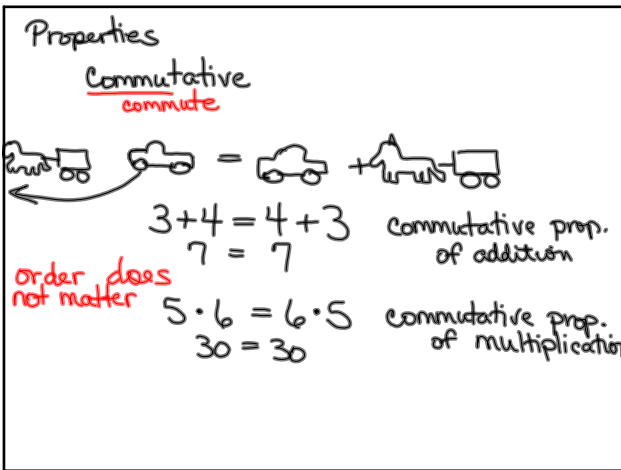 Properties
Commutative
commute
= +
3 + 4 = 4 + 3 commutative prop.
7 = 7 of addition
order does
not matter
5 · 6 = 6 · 5 commutative prop.
30 = 30 of multiplication